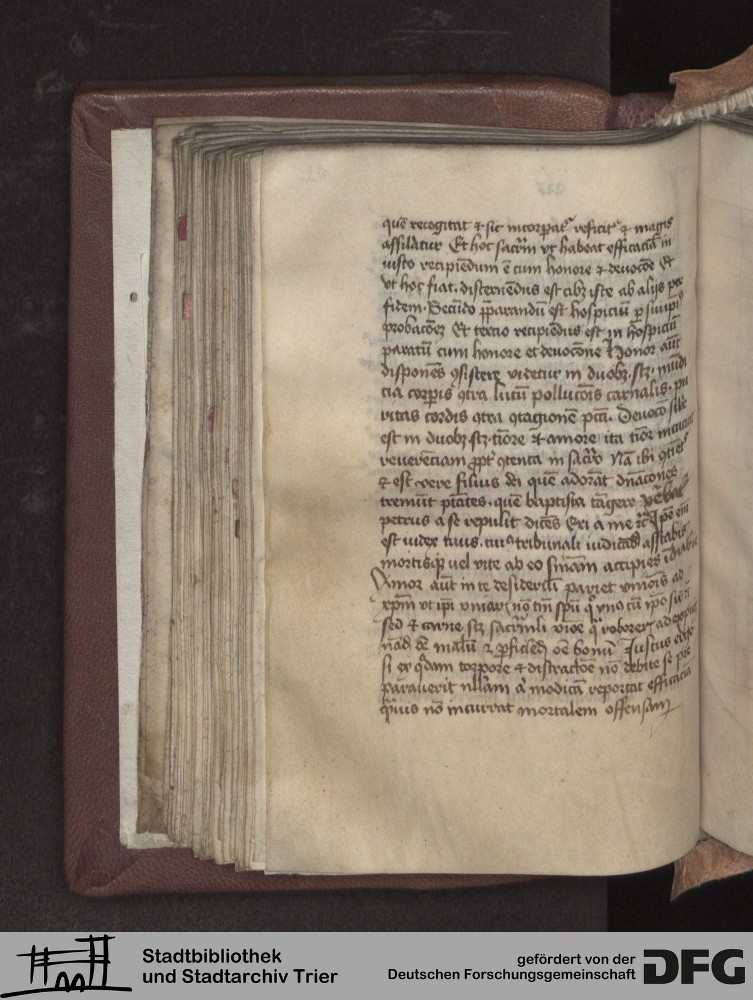 quē recogitat ⁊ sic incorporatᵉ reficitᵉ ⁊ magis
assilatur Et hoc sacrm̄ vt habeat efficaciā in
iusto recipiēdum ē cum honore ⁊ deuocōe Et
vt hoc fiat. discernēdus est cibꝫ iste ab alijs per
fidem. Secūdo p̄parandū est hospiciū per
probacōeꝫ Et tercio recipiēdus est in hospiciū
paratū cum honore et deuocōne Honor aūt
disponēs ꝯsistere videtur in duobꝫ. scꝫ. mūdi
cia corpis ꝯtra lutū pollucōis carnalis. pu
ritas cordis ꝯtra ꝯtagionē pcti. Deuocō silr
est in duobꝫ scꝫ tiōre ⁊ amore ita tiōr
reuerēciam ꝓpt ꝯtenta in sacro Nā ibi
⁊ est vere filius dei quē adorāt dn̄acōnes
tremūt ptātes. quē baptista tāgere
petrus a se repulit dicēs Exi a me
est iudex tuus. cuiꝰ tribunali iudicādꝰ astabis
mortisqꝫ vel vite ab eo sniam accipies
Amor aūt in te desideriū pariet vnionis ad
xpm̄ vt ip̄i vniaris nō tm̄ spū
sed ⁊ carne scꝫ sacrm̄li vioē qͣ roborer
nād de malū ⁊ ꝑficiēd oē bonū Iustus
si ex qͣdam torpore ⁊ distractōe nō debite se pre
parauerit nllam aͭ modicā reportat efficaciā
qͣuis nō incurrat mortalem offensam
Stadtbibliothek
und Stadtarchiv Trier
gefördert von der
Deutschen Forschungsgemeinschaft
DFG